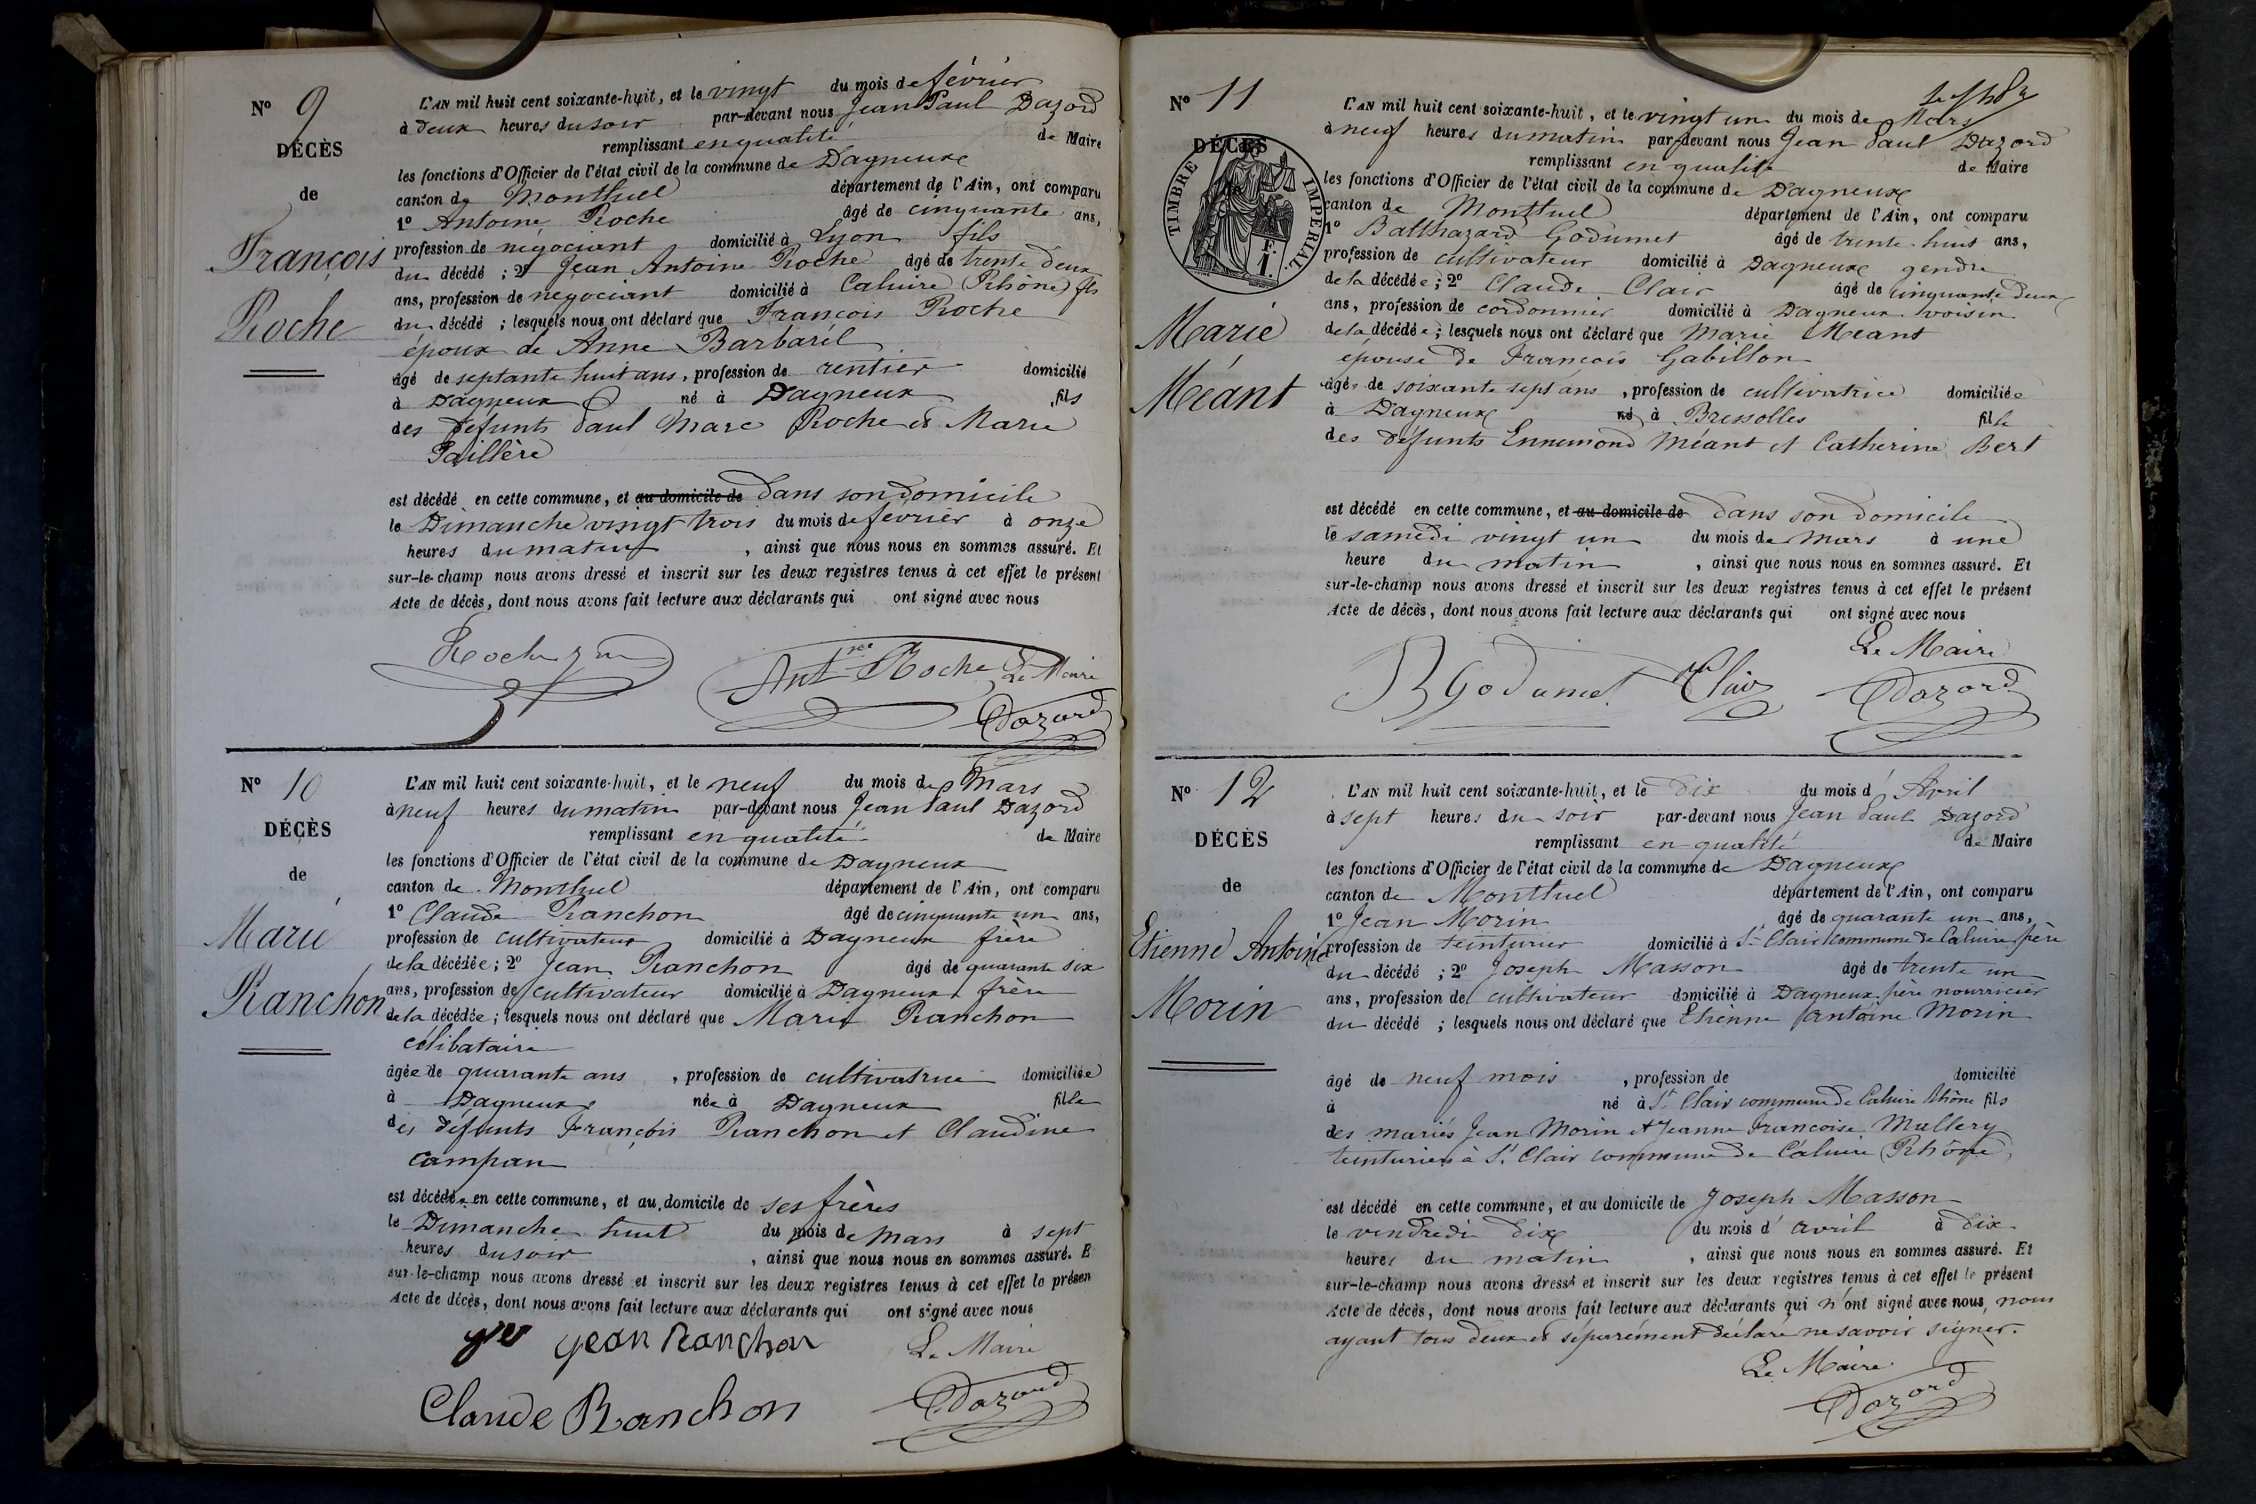 N° 9
DÉCÈS
de
François
Roche
L'AN mil huit cent soixante-huit, et le vingt du mois de février
à deux heures du soir par-devant nous Jean Paul Dazord
remplissant en qualité de Maire
les fonctions d'Officier de l'état civil de la commune de Dagneux
canton de Montluel département de l'Ain, ont comparu
1° Antoine Roche âgé de cinquante ans,
profession de négociant domicilié à Lyon fils
du décédé ; 2° Jean Antoine Roche âgé de trente deux
ans, profession de négociant domicilié à Caluire (Rhône) fils
du décédé ; lesquels nous ont déclaré que François Roche
époux de Anne Barbarel
âgé de septante huit ans, profession de rentier domicilié
à Dagneux né à Dagneux fils
des défunts Paul Marc Roche et Marie
Paillère
est décédé en cette commune, et au domicile de dans son domicile
le Dimanche vingt trois du mois de février à onze
heures du matin, ainsi que nous nous en sommes assuré. Et
sur-le-champ nous avons dressé et inscrit sur les deux registres tenus à cet effet le présent
Acte de décès, dont nous avons fait lecture aux déclarants qui ont signé avec nous
Roche
Ant Roche Le Maire
Dazord
N° 10
DÉCÈS
de
Marie
Ranchon
L'AN mil huit cent soixante-huit, et le neuf du mois de Mars
à neuf heures du matin par-devant nous Jean Paul Dazord
remplissant en qualité de Maire
les fonctions d'Officier de l'état civil de la commune de Dagneux
canton de Montluel département de l'Ain, ont comparu
1° Claude Ranchon âgé de cinquante un ans,
profession de cultivateur domicilié à Dagneux frère
de la décédée ; 2° Jean Ranchon âgé de quarante six
ans, profession de cultivateur domicilié à Dagneux frère
de la décédée ; lesquels nous ont déclaré que Marie Ranchon
célibataire
âgée de quarante ans, profession de cultivatrice domiciliée
à Dagneux née à Dagneux fille
des défunts François Ranchon et Claudine
Campan
est décédée en cette commune, et au domicile de ses frères
le Dimanche huit du mois de Mars à sept
heures du soir, ainsi que nous nous en sommes assuré. E
sur-le-champ nous avons dressé et inscrit sur les deux registres tenus à cet effet le présen
Acte de décès, dont nous avons fait lecture aux déclarants qui ont signé avec nous
Jean Ranchon Le Maire
Claude Ranchon Dazord
N° 11
DÉCÈS
TIMBRE IMPÉRIAL
Marie
Méant
L'AN mil huit cent soixante-huit, et le vingt un du mois de Mars
à neuf heures du matin par-devant nous Jean Paul Dazord
remplissant en qualité de Maire
les fonctions d'Officier de l'état civil de la commune de Dagneux
canton de Montluel département de l'Ain, ont comparu
1° Balthazard Godumet âgé de trente huit ans,
profession de cultivateur domicilié à Dagneux gendre
de la décédée ; 2° Claude Clair âgé de cinquante deux
ans, profession de cordonnier domicilié à Dagneux voisin
de la décédée ; lesquels nous ont déclaré que Marie Méant
épouse de François Gabillon
âgée de soixante sept ans, profession de cultivatrice domiciliée
à Dagneux né à Bressolles fille
des défunts Ennemond Méant et Catherine Bert
est décédé en cette commune, et au domicile de dans son domicile
le samedi vingt un du mois de mars à une
heure du matin, ainsi que nous nous en sommes assuré. Et
sur-le-champ nous avons dressé et inscrit sur les deux registres tenus à cet effet le présent
Acte de décès, dont nous avons fait lecture aux déclarants qui ont signé avec nous
Le Maire
B Godumet Clair Dazord
N° 12
DÉCÈS
de
Etienne Antoine
Morin
L'AN mil huit cent soixante-huit, et le dix du mois d'Avril
à sept heures du soir par-devant nous Jean Paul Dazord
remplissant en qualité de Maire
les fonctions d'Officier de l'état civil de la commune de Dagneux
canton de Montluel département de l'Ain, ont comparu
1° Jean Morin âgé de quarante un ans,
profession de teinturier domicilié à St Clair commune de Caluire père
du décédé ; 2° Joseph Masson âgé de trente un
ans, profession de cultivateur domicilié à Dagneux père nourricier
du décédé ; lesquels nous ont déclaré que Etienne Antoine Morin
âgé de neuf mois, profession de domicilié
à né à St Clair commune de Caluire Rhône fils
des mariés Jean Morin et Jeanne Françoise Mullery
teinturiers à St Clair commune de Caluire (Rhône)
est décédé en cette commune, et au domicile de Joseph Masson
le vendredi dix du mois d'avril à dix
heures du matin, ainsi que nous nous en sommes assuré. Et
sur-le-champ nous avons dressé et inscrit sur les deux registres tenus à cet effet le présent
Acte de décès, dont nous avons fait lecture aux déclarants qui n'ont signé avec nous, nous
ayant tous deux et séparément déclaré ne savoir signer.
Le Maire
Dazord